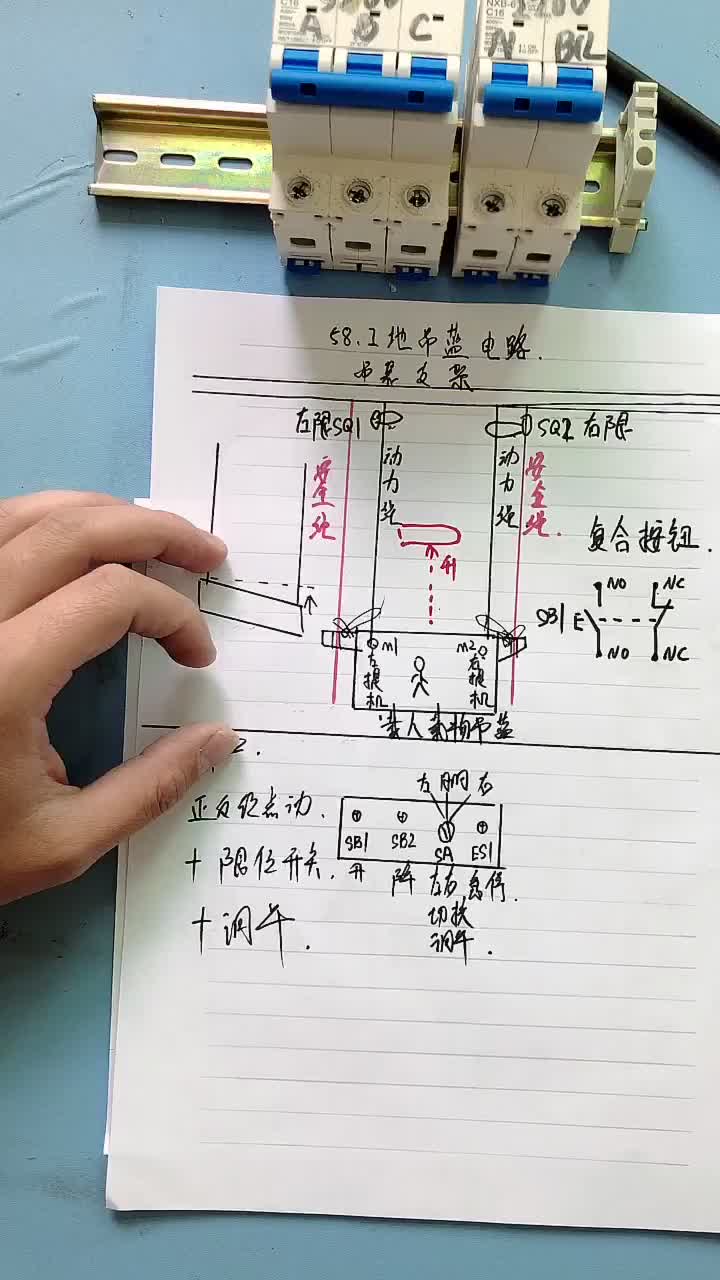 C16
NXB-6
C16
A B C
N
58.工地吊篮电路.
吊篮支架
左限SQ1
SQ2 右限
安全绳
动力绳
动力绳
安全绳.
升
复合按钮.
NO NC
SB1 E
NO NC
m1
左提机
m2
右提机
载人载物吊篮
2.
正反转点动.
+限位开关.
+调平.
左 右
SB1 SB2 SA ES1
升 降 左右 急停.
切换
调平.